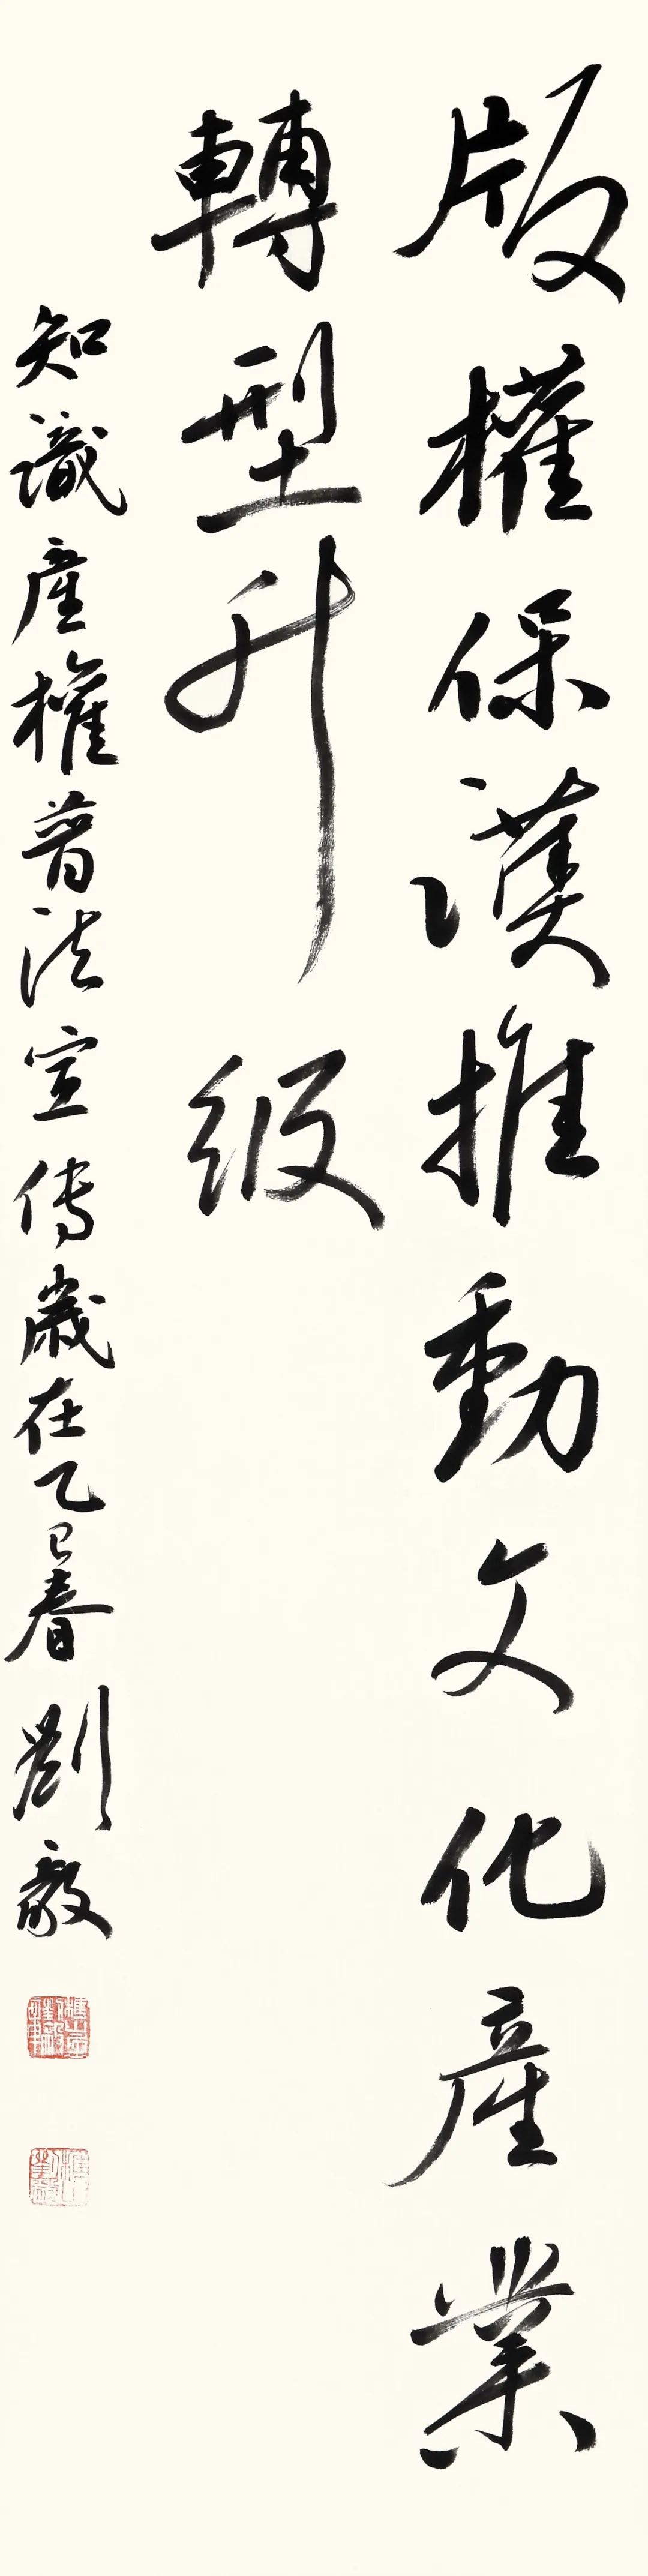 版權保護推動文化產業
轉型升级
知識產權普法宣传歲在乙巳春劉毅